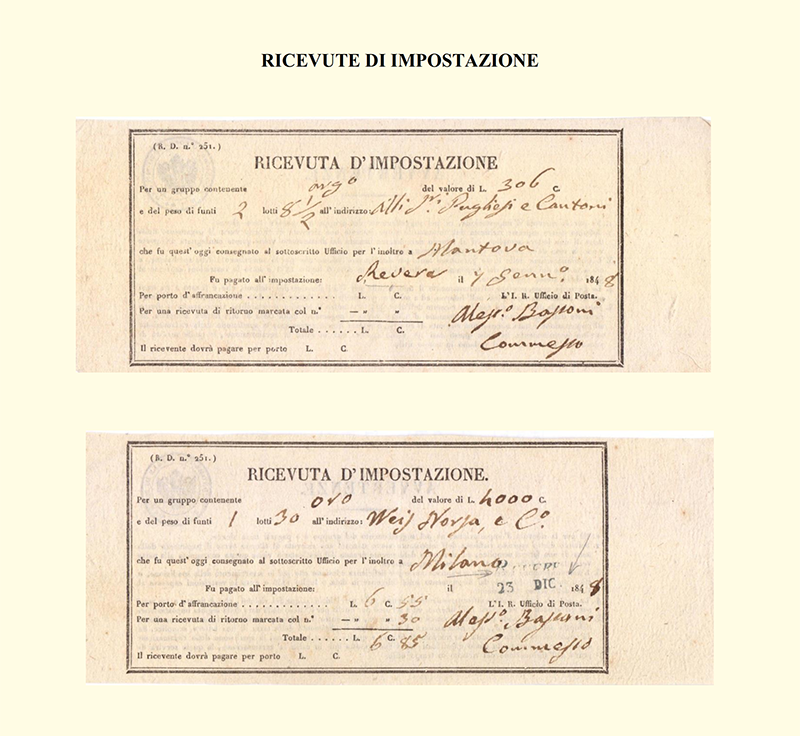 RICEVUTE DI IMPOSTAZIONE
(R. D. n.° 251.)
RICEVUTA D'IMPOSTAZIONE
Per un gruppo contenente argº del valore di L. 306 C.
e del peso di funti 2 lotti 8 1/2 all' indirizzo: Alli Sri. Pugliesi e Cantoni
che fu quest' oggi consegnato al sottoscritto Ufficio per l'inoltro a Mantova
Fu pagato all' impostazione: Revere il 7 Gennº. 1848
Per porto d'affrancazione . . . . . . . . . . . . L. C. L'I. R. Ufficio di Posta.
Per una ricevuta di ritorno marcata col n.° — » » Aless.º Bassoni
Totale . . . . . . L. C. Commesso
Il ricevente dovrà pagare per porto L. C.
(R. D. n.° 251.)
RICEVUTA D'IMPOSTAZIONE.
Per un gruppo contenente oro del valore di L. 4000 C.
e del peso di funti 1 lotti 30 all' indirizzo: Weis Norsa, e Cº.
che fu quest' oggi consegnato al sottoscritto Ufficio per l'inoltro a Milano
Fu pagato all' impostazione: il 23 DIC. 1848
Per porto d'affrancazione . . . . . . . . . . . . L. 6 C. 55 L'I. R. Ufficio di Posta.
Per una ricevuta di ritorno marcata col n.° — » » 30 Aless.º Bassoni
Totale . . . . . . L. 6 C. 85 Commesso
Il ricevente dovrà pagare per porto L. C.